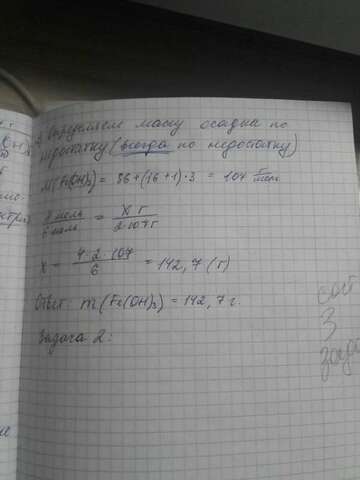 Определяем массу осадка по
недостатку (всегда по недостатку)
M(Fe(OH)₃) = 56 + (16 + 1) · 3 = 107 г/моль
4 моль / 6 моль = x г / 2·107 г
x = 4·2·107 / 6 = 142,7 (г)
Ответ: m(Fe(OH)₃) = 142,7 г.
Задача 2:
3